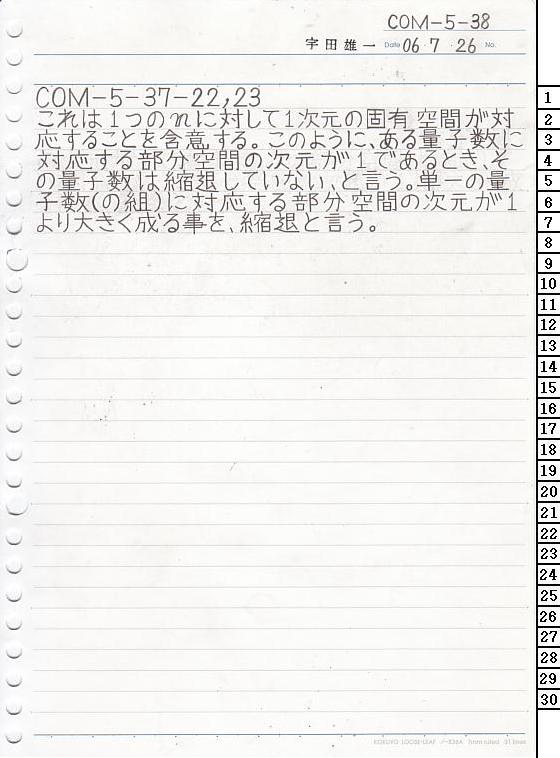 COM-5-38
宇田雄一 Date 06・7・26 No.
COM-5-37-22,23
これは1つのnに対して1次元の固有空間が対
応することを含意する。このように、ある量子数に
対応する部分空間の次元が1であるとき、そ
の量子数は縮退していない、と言う。単一の量
子数(の組)に対応する部分空間の次元が1
より大きく成る事を、縮退と言う。
1
2
3
4
5
6
7
8
9
10
11
12
13
14
15
16
17
18
19
20
21
22
23
24
25
26
27
28
29
30
KOKUYO LOOSE-LEAF ノ-836A 7mm ruled 31 lines